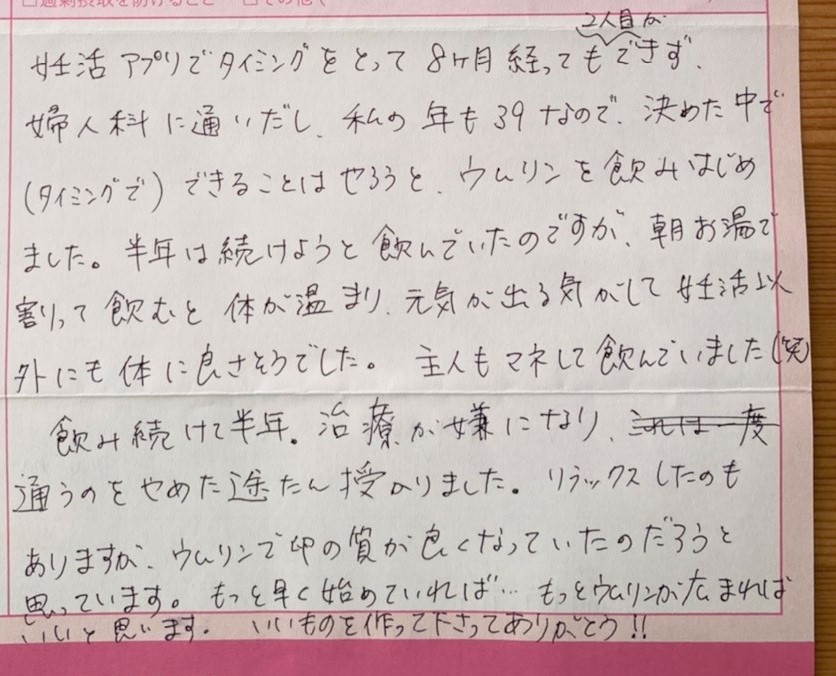 □過剰摂取を防げること □その他（
2人目が
妊活アプリでタイミングをとって8ヶ月経ってもできず、
婦人科に通いだし、私の年も39なので、決めた中で
(タイミングで)できることはやろうと、ウムリンを飲みはじめ
ました。半年は続けようと飲んでいたのですが、朝お湯で
割って飲むと体が温まり、元気が出る気がして妊活以
外にも体に良さそうでした。 主人もマネして飲んでいました(笑)
飲み続けて半年。治療が嫌になり、これは一度
通うのをやめた途たん授かりました。リラックスしたのも
ありますが、ウムリンで卵の質が良くなっていたのだろうと
思っています。もっと早く始めていれば… もっとウムリンが広まれば
いいと思います。 いいものを作って下さってありがとう!!